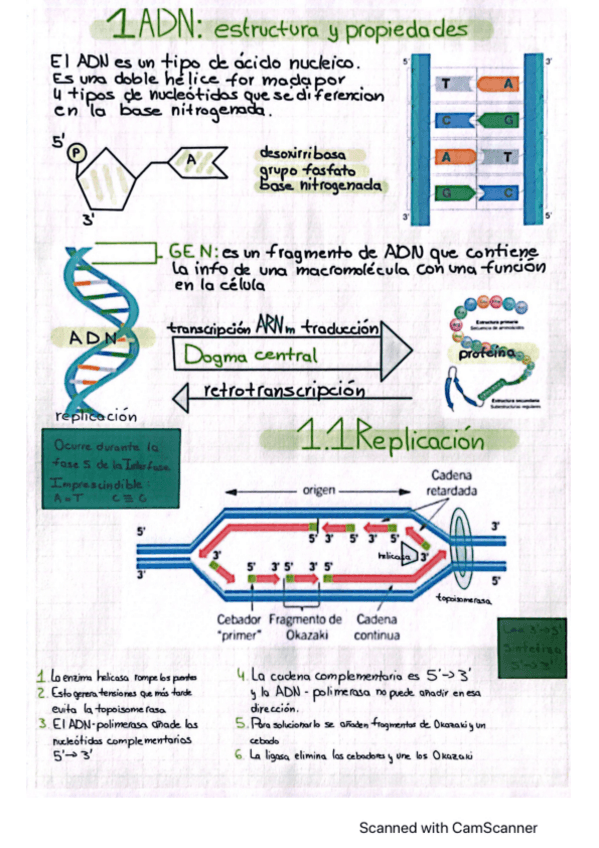 1 ADN: estructura y propiedades
El ADN es un tipo de ácido nucleico.
Es una doble hélice formada por
4 tipos de nucleótidos que se diferencian
en la base nitrogenada.
5'
P
A
3'
desoxirribosa
grupo fosfato
base nitrogenada
5' 3'
T A
C G
A T
G C
3' 5'
GEN: es un fragmento de ADN que contiene
la info de una macromolécula con una función
en la célula
ADN
transcripción ARNm traducción
Dogma central
retrotranscripción
Estructura primaria
Secuencia de aminoácidos
proteína
Estructura secundaria
Subestructuras regulares
replicación
1.1 Replicación
Ocurre durante la
fase S de la Interfase
Imprescindible:
A=T C≡G
origen
Cadena
retardada
5' 3'
5' 3' 5' 3' 5'
3' helicasa 3'
3' 5' 3' 5'
3' 5'
topoisomerasa
Cebador
"primer"
Fragmento de
Okazaki
Cadena
continua
Lee 3'→5'
Sintetiza
5'→3'
1. La enzima helicasa rompe los puentes
2. Esto genera tensiones que más tarde
evita la topoisomerasa
3. El ADN-polimerasa añade los
nucleótidos complementarios
5'→3'
4. La cadena complementaria es 5'→3'
y la ADN-polimerasa no puede añadir en esa
dirección.
5. Para solucionarlo se añaden fragmentos de Okazaki y un
cebado
6. La ligasa elimina los cebadores y une los Okazaki
Scanned with CamScanner